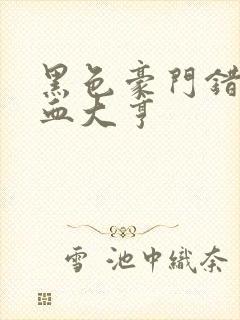 黑色豪門錯
血大亨
雪 池中織奈